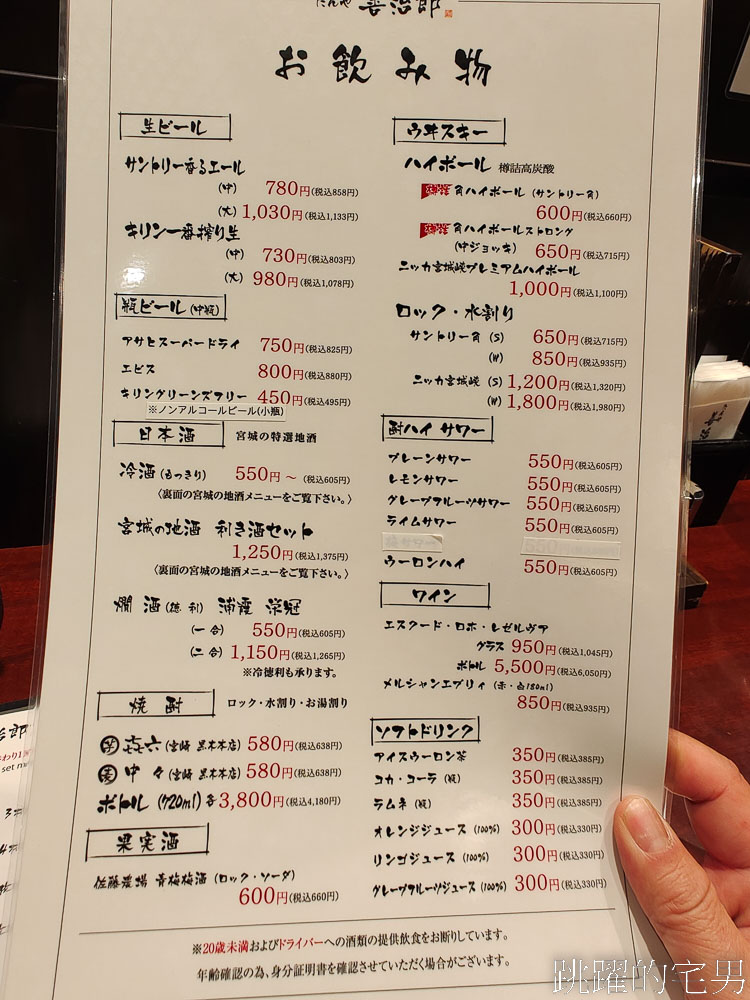 たんや 善治郎
お飲み物
生ビール
サントリー香るエール
(中) 780円(税込858円)
(大) 1,030円(税込1,133円)
キリン一番搾り生
(中) 730円(税込803円)
(大) 980円(税込1,078円)
瓶ビール(中瓶)
アサヒスーパードライ 750円(税込825円)
エビス 800円(税込880円)
キリングリーンズフリー 450円(税込495円)
※ノンアルコールビール(小瓶)
日本酒 宮城の特選地酒
冷酒(もっきり) 550円～(税込605円)
〈裏面の宮城の地酒メニューをご覧下さい。〉
宮城の地酒 利き酒セット
1,250円(税込1,375円)
〈裏面の宮城の地酒メニューをご覧下さい。〉
燗酒(徳利) 浦霞 栄冠
(一合) 550円(税込605円)
(二合) 1,150円(税込1,265円)
※冷徳利も承ります。
焼酎 ロック・水割り・お湯割り
芋 㐂六(宮崎 黒木本店) 580円(税込638円)
麦 中々(宮崎 黒木本店) 580円(税込638円)
ボトル(720ml)各3,800円(税込4,180円)
果実酒
佐藤農場 青梅梅酒(ロック・ソーダ)
600円(税込660円)
ウヰスキー
ハイボール 樽詰高炭酸
角ハイボール(サントリー角)
600円(税込660円)
角ハイボールストロング
(中ジョッキ) 650円(税込715円)
ニッカ宮城峡プレミアムハイボール
1,000円(税込1,100円)
ロック・水割り
サントリー角(S) 650円(税込715円)
(W) 850円(税込935円)
ニッカ宮城峡(S) 1,200円(税込1,320円)
(W) 1,800円(税込1,980円)
酎ハイ サワー
プレーンサワー 550円(税込605円)
レモンサワー 550円(税込605円)
グレープフルーツサワー 550円(税込605円)
ライムサワー 550円(税込605円)
ウーロンハイ 550円(税込605円)
ワイン
エスクード・ロホ・レゼルヴァ
グラス 950円(税込1,045円)
ボトル 5,500円(税込6,050円)
メルシャンエブリィ(赤・白180ml)
850円(税込935円)
ソフトドリンク
アイスウーロン茶 350円(税込385円)
コカ・コーラ(瓶) 350円(税込385円)
ラムネ(瓶) 350円(税込385円)
オレンジジュース(100%) 300円(税込330円)
リンゴジュース(100%) 300円(税込330円)
グレープフルーツジュース(100%) 300円(税込330円)
※20歳未満およびドライバーへの酒類の提供飲食をお断りしています。
年齢確認の為、身分証明書を確認させていただく場合がございます。
跳躍的宅男